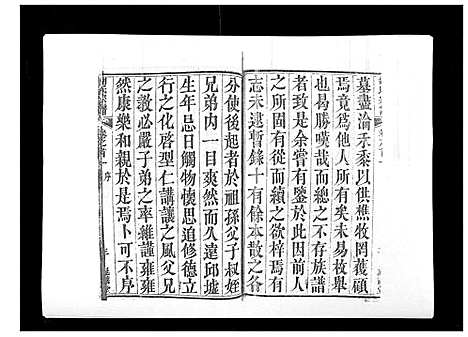 墓盡淪禾黍以供樵牧罔蓰碩
焉竟爲他人所有矣未易枚舉
也曷勝嘆哉而總之不存族譜
者致是余嘗有鑒於此因前人
之所固有從而續之欲梓焉有
志未逮暫錄十有餘本散之各
分使後起者於祖孫父子叔姪
兄弟内一目爽然而久遠邱墟
生年忌日無不朗悉修德立
行之化啓型仁講讓之風父兄
之教必嚴子弟之率雜謹雍雍
然康樂和親於是焉卜可不序
序